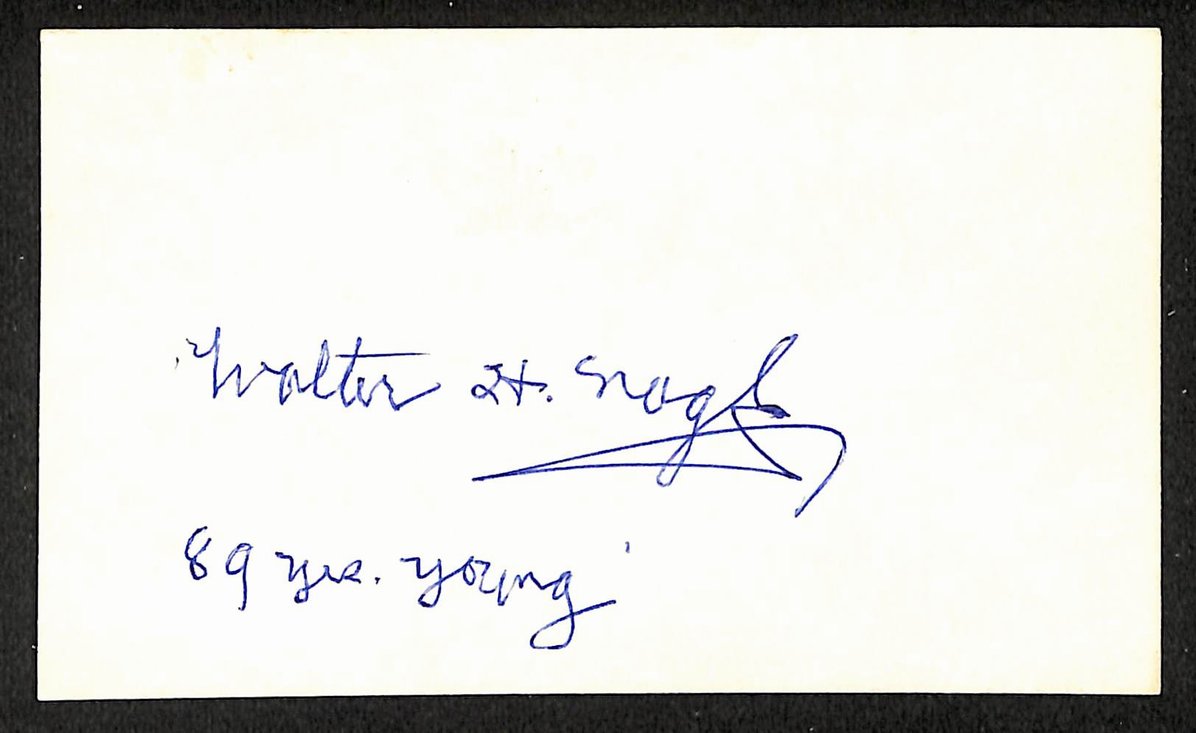 Walter H. Nagle
89 yrs. young